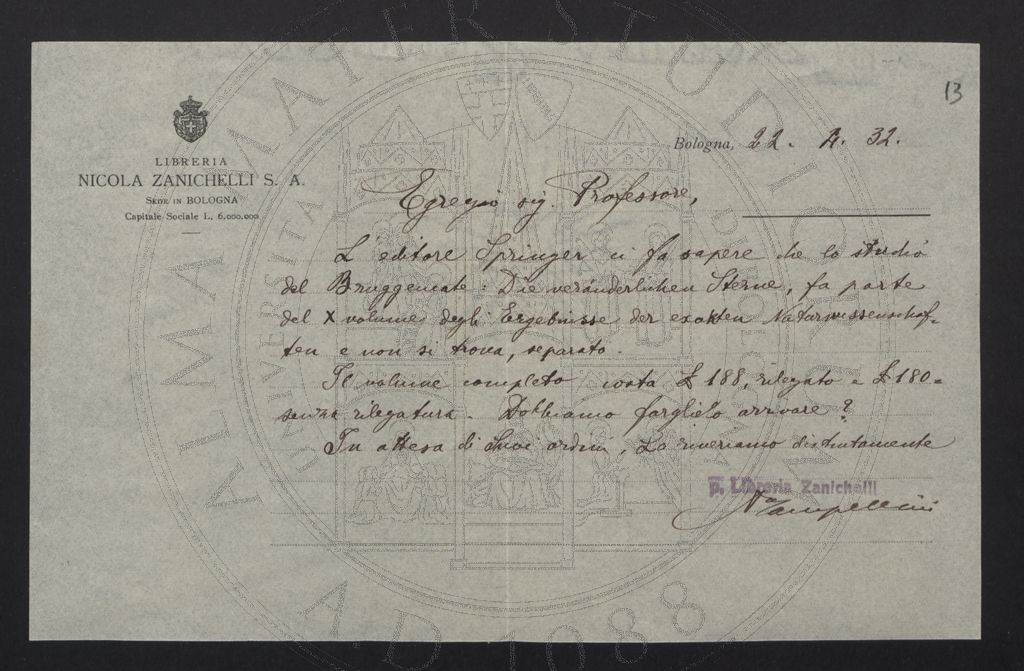 13
LIBRERIA
NICOLA ZANICHELLI S. A.
SEDE IN BOLOGNA
Capitale Sociale L. 6.000.000
Bologna, 22. 4. 32.
Egregio sig. Professore,
L'editore Springer ci fa sapere che lo studio
del Bruggencate: Die veränderlichen Sterne, fa parte
del X volume degli Ergebnisse der exakten Naturwissenschaf-
ten e non si trova, separato.
Il volume completo costa £ 188, rilegato e £ 180=
senza rilegatura. Dobbiamo farglielo arrivare?
In attesa di Suoi ordini, La riveriamo distintamente
p. Libreria Zanichelli
ALMA MATER STUDIORUM
A.D. 1088